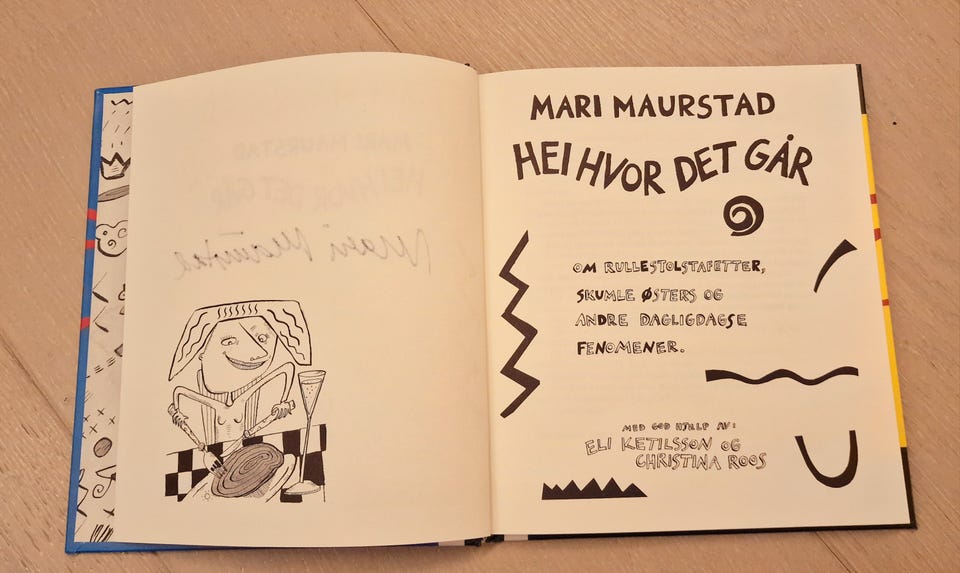 Mari Maurstad
MARI MAURSTAD
HEI HVOR DET GÅR
OM RULLESTOLSTAFETTER,
SKUMLE ØSTERS OG
ANDRE DAGLIGDAGSE
FENOMENER.
MED GOD HJELP AV:
ELI KETILSSON OG
CHRISTINA ROOS